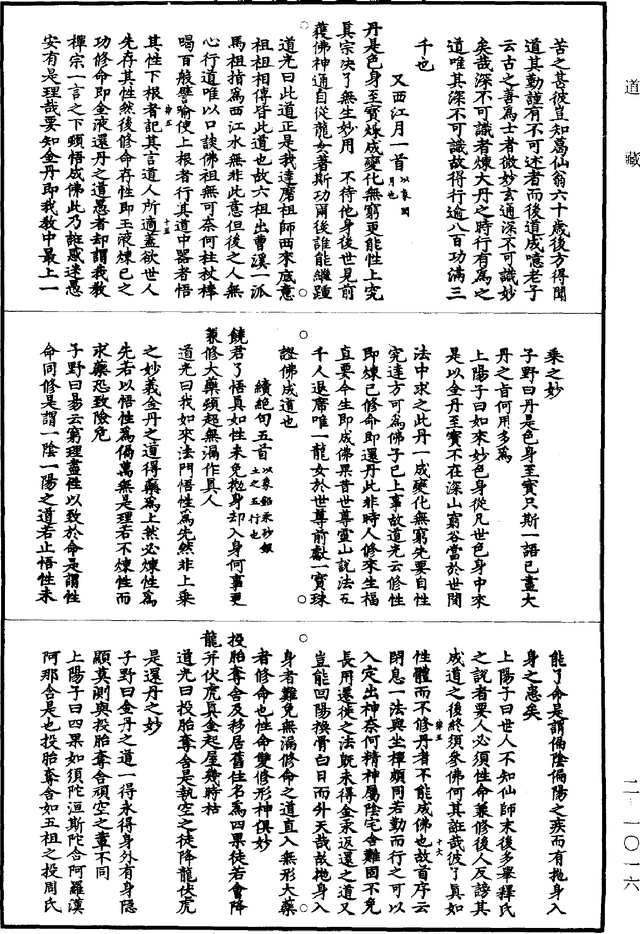 道藏
苦之甚彼豈知爲仙翁六十歲後方得聞
道其勤謹有不可述者而後道成噫老子
云古之善爲士者微妙玄通深不可識妙
矣哉深不可識者煉大丹之時行有爲之
道唯其深不可識故得行逾八百功滿三
千也
又西江月一首以象閏月也
丹是色身至寶煉成變化無窮更能性上究
真宗決了無生妙用　不待他身後世見前
獲佛神通自從龍女著斯功爾後誰能繼踵
道光曰此道正是我達磨祖師西來底意
祖祖相傳皆此道也故六祖出曹溪一派
馬祖指爲西江水無非此意但後之人無
心行道唯以口談佛祖無可奈何柱杖棒
喝百般譬喻使上根者行其道中器者悟
其性下根者記其言道人所適蓋欲世人
先存其性然後修命存性即玉液煉已之
功修命即金液還丹之道愚者却謂我教
禪宗一言之下頓悟成佛此乃誑惑迷愚
安有是理哉要知金丹即我教中最上一
乘之妙
子野曰丹是色身至寶只斯一語已盡大
丹之旨何用多爲
上陽子曰如來妙色身從凡世色身中來
是以金丹至寶不在深山窮谷當於世間
法中求之此丹一成變化無窮先要自性
究達方可爲佛子已上事故道光云修性
即煉已修命即還丹此非時人修來生福
直要今生即成佛果昔世尊靈山說法五
千人退席唯一龍女於世尊前獻一寶珠
證佛成道也
續絕句五首以象鉛汞砂銀土之五行也
饒君了悟真如性未免拋身却入身何事更
兼修大藥頓超無漏作真人
道光曰我如來法門悟性爲先然非上乘
之妙義金丹之道得藥爲上然必煉性爲
先若以悟性爲偈萬無是理若不煉性而
求藥恐致險危
子野曰易云窮理盡性以致於命是謂性
命同修是謂一陰一陽之道若止悟性未
能了命是謂偏陰偏陽之疾而有拋身入
身之患矣
上陽子曰世人不知仙師末後多舉釋氏
之說者要人必須性命兼修後人反謗其
成道之後終須參佛何其誑哉彼了真如
性體而不修丹者不能成佛也故首序云
閉息一法與坐禪頗同若勤而行之可以
入定出神奈何精神屬陰宅舍難固不免
長用遷徙之法既未得金汞返還之道又
豈能回陽換骨白日而升天哉故拋身入
身者難免無漏修命之道直入無形大藥
者修命也性命雙修形神俱妙
投胎奪舍及移居舊住名爲四果徒若會降
龍并伏虎真金起屋幾時枯
道光曰投胎奪舍是執空之徒降龍伏虎
是還丹之妙
子野曰金丹之道一得永得身外有身隱
顯莫測與投胎奪舍頑空之輩不同
上陽子曰四果如須陀洹斯陀含阿羅漢
阿那含是也投胎奪舍如五祖之投周氏
二一一〇一六